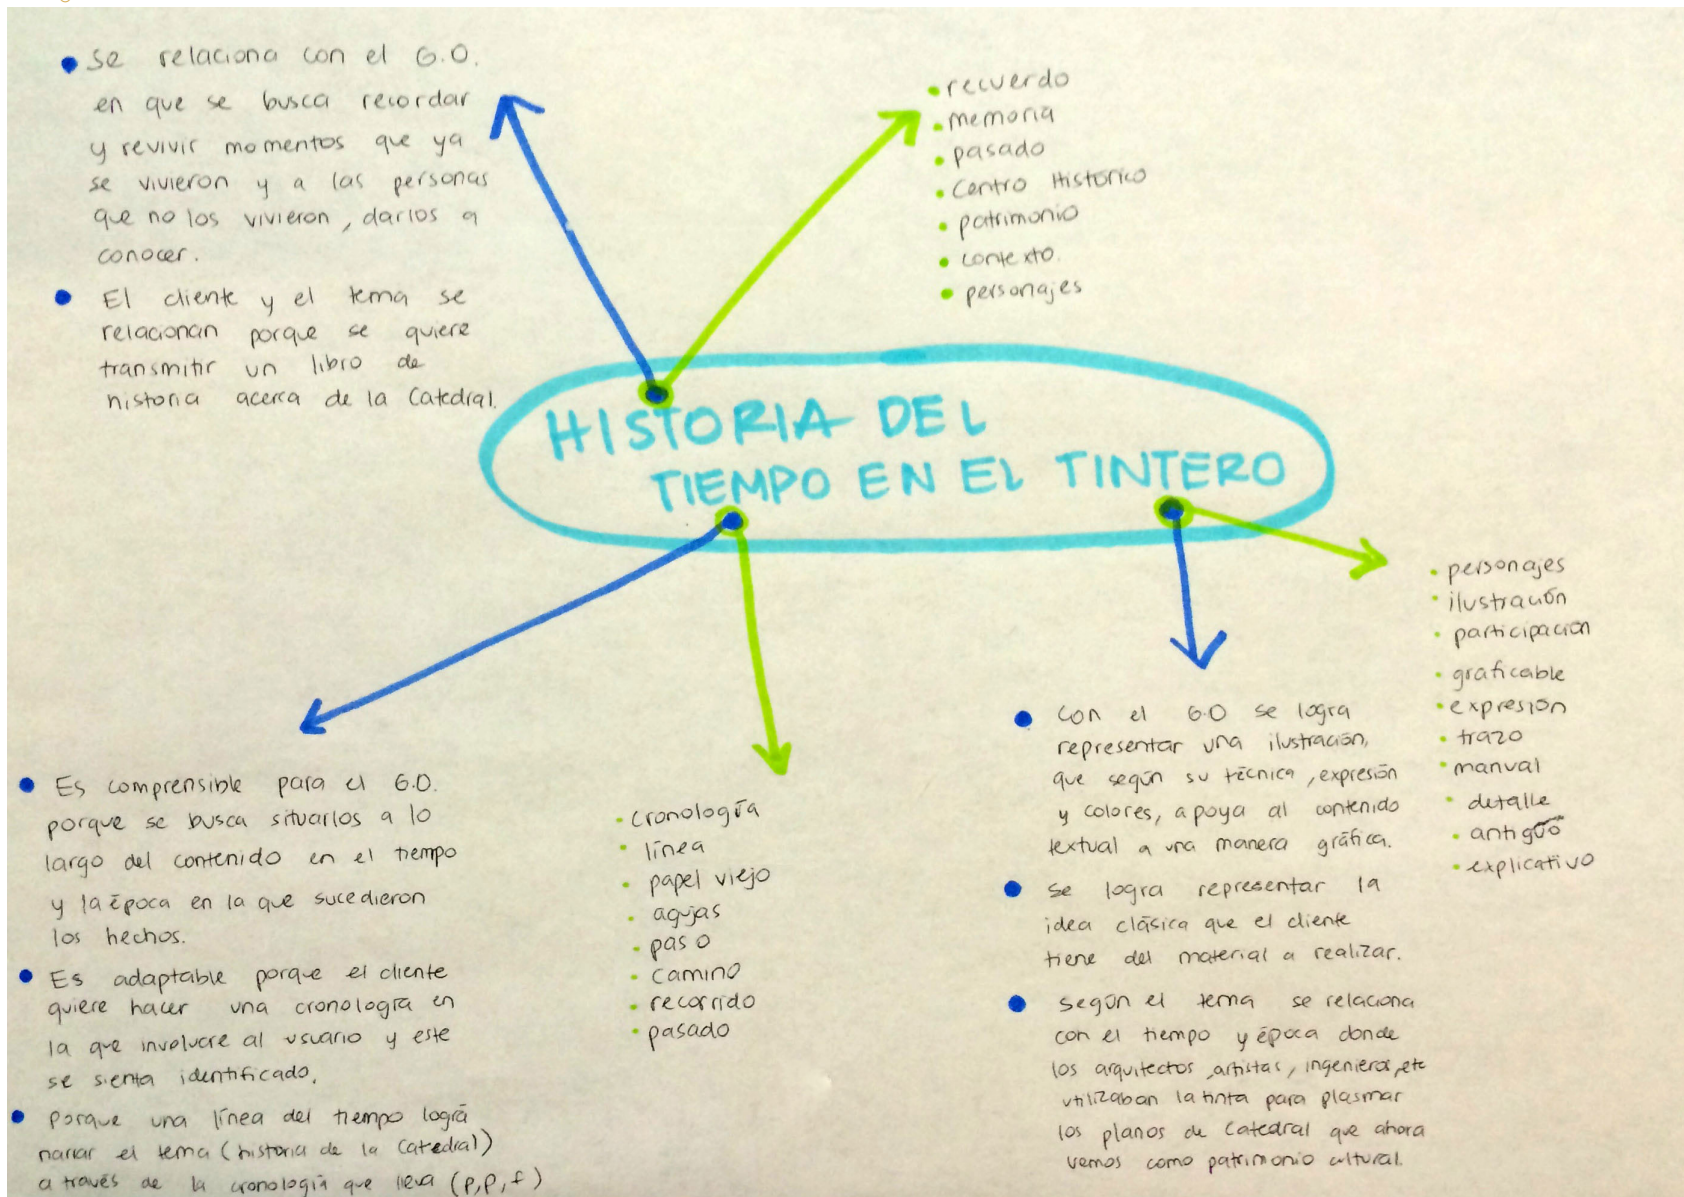 Se relaciona con el G.O.
en que se busca recordar
y revivir momentos que ya
se vivieron y a las personas
que no los vivieron, darlos a
conocer.
El cliente y el tema se
relacionan porque se quiere
transmitir un libro de
historia acerca de la Catedral.
recuerdo
memoria
pasado
Centro Histórico
patrimonio
contexto.
personajes
HISTORIA DEL
TIEMPO EN EL TINTERO
Es comprensible para el G.O.
porque se busca situarlos a lo
largo del contenido en el tiempo
y la época en la que sucedieron
los hechos.
Es adaptable porque el cliente
quiere hacer una cronología en
la que involucre al usuario y este
se sienta identificado.
Porque una línea del tiempo lográ
narrar el tema (historia de la Catedral)
a través de la cronología que lleva (p,p,f)
cronología
línea
papel viejo
agujas
paso
camino
recorrido
pasado
Con el G.O se logra
representar una ilustración,
que según su técnica, expresión
y colores, apoya al contenido
textual a una manera gráfica.
Se logra representar la
idea clásica que el cliente
tiene del material a realizar.
Según el tema se relaciona
con el tiempo y época donde
los arquitectos, artistas, ingenieros, etc
utilizaban la tinta para plasmar
los planos de Catedral que ahora
vemos como patrimonio cultural.
personajes
ilustración
participación
graficable
expresión
trazo
manual
detalle
antiguo
explicativo